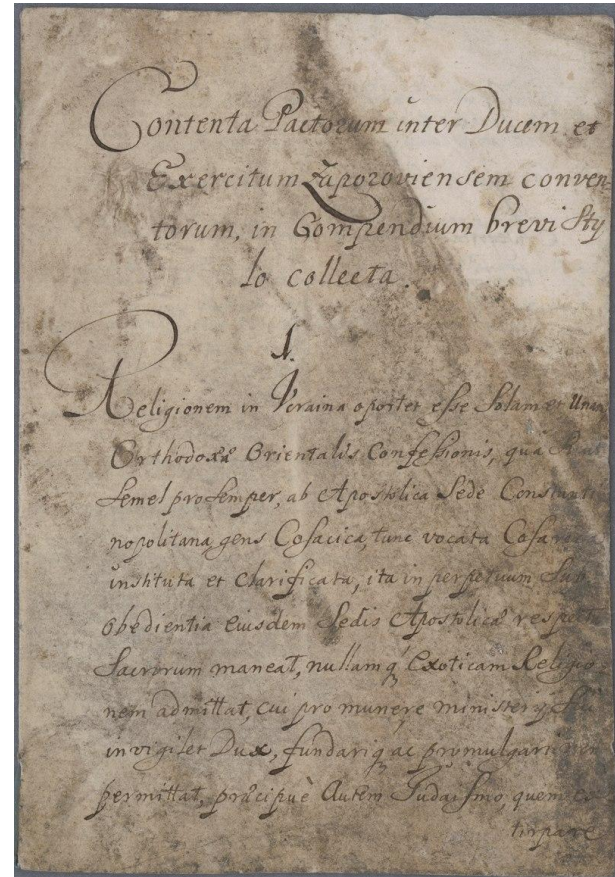 Contenta Pactorum inter Ducem et
Exercitum Zaporoviensem conven
torum, in Compendium brevi Sty
lo collecta.
1.
Religionem in Ucraina oportet esse Solam et Unam
Orthodoxæ Orientalis Confessionis, qua
Semel pro Semper, ab Apostolica Sede Constanti
nopolitana, gens Cosacica, tunc vocata
instituta et clarificata, ita in perpetuum Sub
Obedientia eiusdem Sedis Apostolicæ respectu
Sacrorum maneat, nullamq́ Exoticam Religio
nem admittat, cui pro munere ministerij Sui
invigilet Dux, fundariq́ ac promulgari non
permittat, præcipuè Autem Judaismo, quem
tirpare